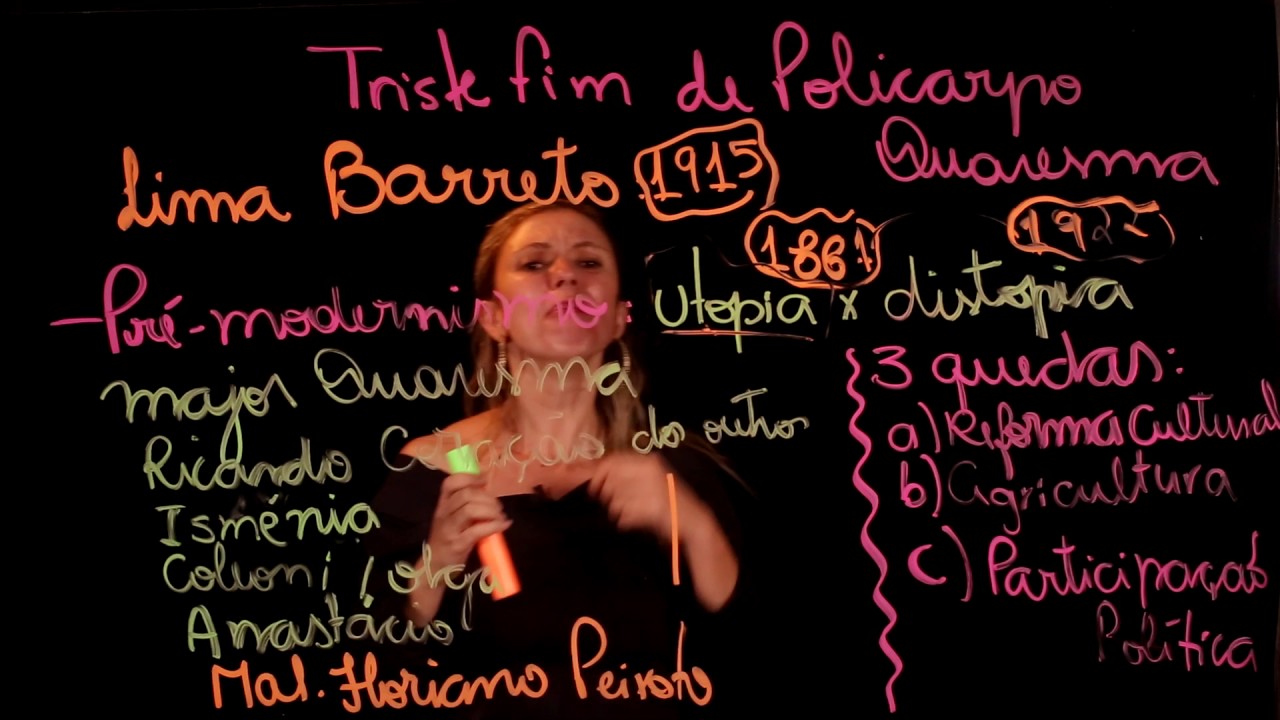 Triste fim de Policarpo
Quaresma
Lima Barreto 1915
1881 1922
- Pré-modernismo: utopia x distopia
major Quaresma
Ricardo Coração dos outros
Ismênia
Coleoni / olga
Anastácio
Mal. Floriano Peixoto
3 quedas:
a) Reforma Cultural
b) Agricultura
c) Participação
Política